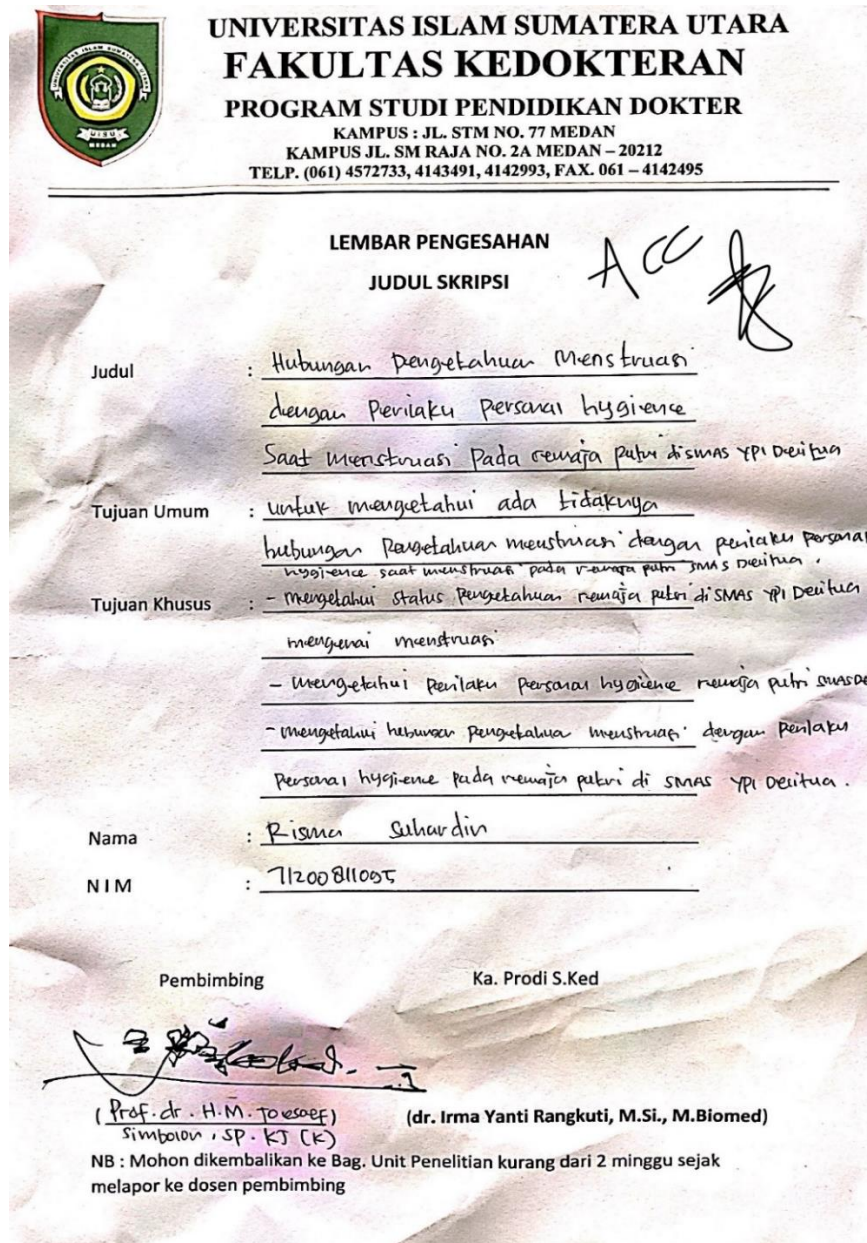 UNIVERSITAS ISLAM SUMATERA UTARA
FAKULTAS KEDOKTERAN
PROGRAM STUDI PENDIDIKAN DOKTER
KAMPUS : JL. STM NO. 77 MEDAN
KAMPUS JL. SM RAJA NO. 2A MEDAN – 20212
TELP. (061) 4572733, 4143491, 4142993, FAX. 061 – 4142495
UNIVERSITAS ISLAM SUMATERA UTARA
UISU
MEDAN
LEMBAR PENGESAHAN
JUDUL SKRIPSI
ACC
Judul : Hubungan Pengetahuan Menstruasi
dengan Perilaku Personal hygience
Saat menstruasi Pada remaja putri di SMAS YPI Delitua
Tujuan Umum : untuk mengetahui ada tidaknya
hubungan Pengetahuan menstruasi dengan perilaku personal
hygience saat menstruasi pada remaja putri SMAS Delitua.
Tujuan Khusus : - mengetahui status Pengetahuan remaja putri di SMAS YPI Delitua
mengenai menstruasi
- mengetahui Perilaku Personal hygience remaja putri SMAS De
- mengetahui hubungan pengetahua menstruasi dengan Perilaku
Personal hygience pada remaja putri di SMAS YPI Delitua.
Nama : Risma Suhardin
NIM : 71200811095
Pembimbing Ka. Prodi S.Ked
(Prof. dr. H.M. Joesoef) (dr. Irma Yanti Rangkuti, M.Si., M.Biomed)
Simbolon, SP. KJ (K)
NB : Mohon dikembalikan ke Bag. Unit Penelitian kurang dari 2 minggu sejak
melapor ke dosen pembimbing